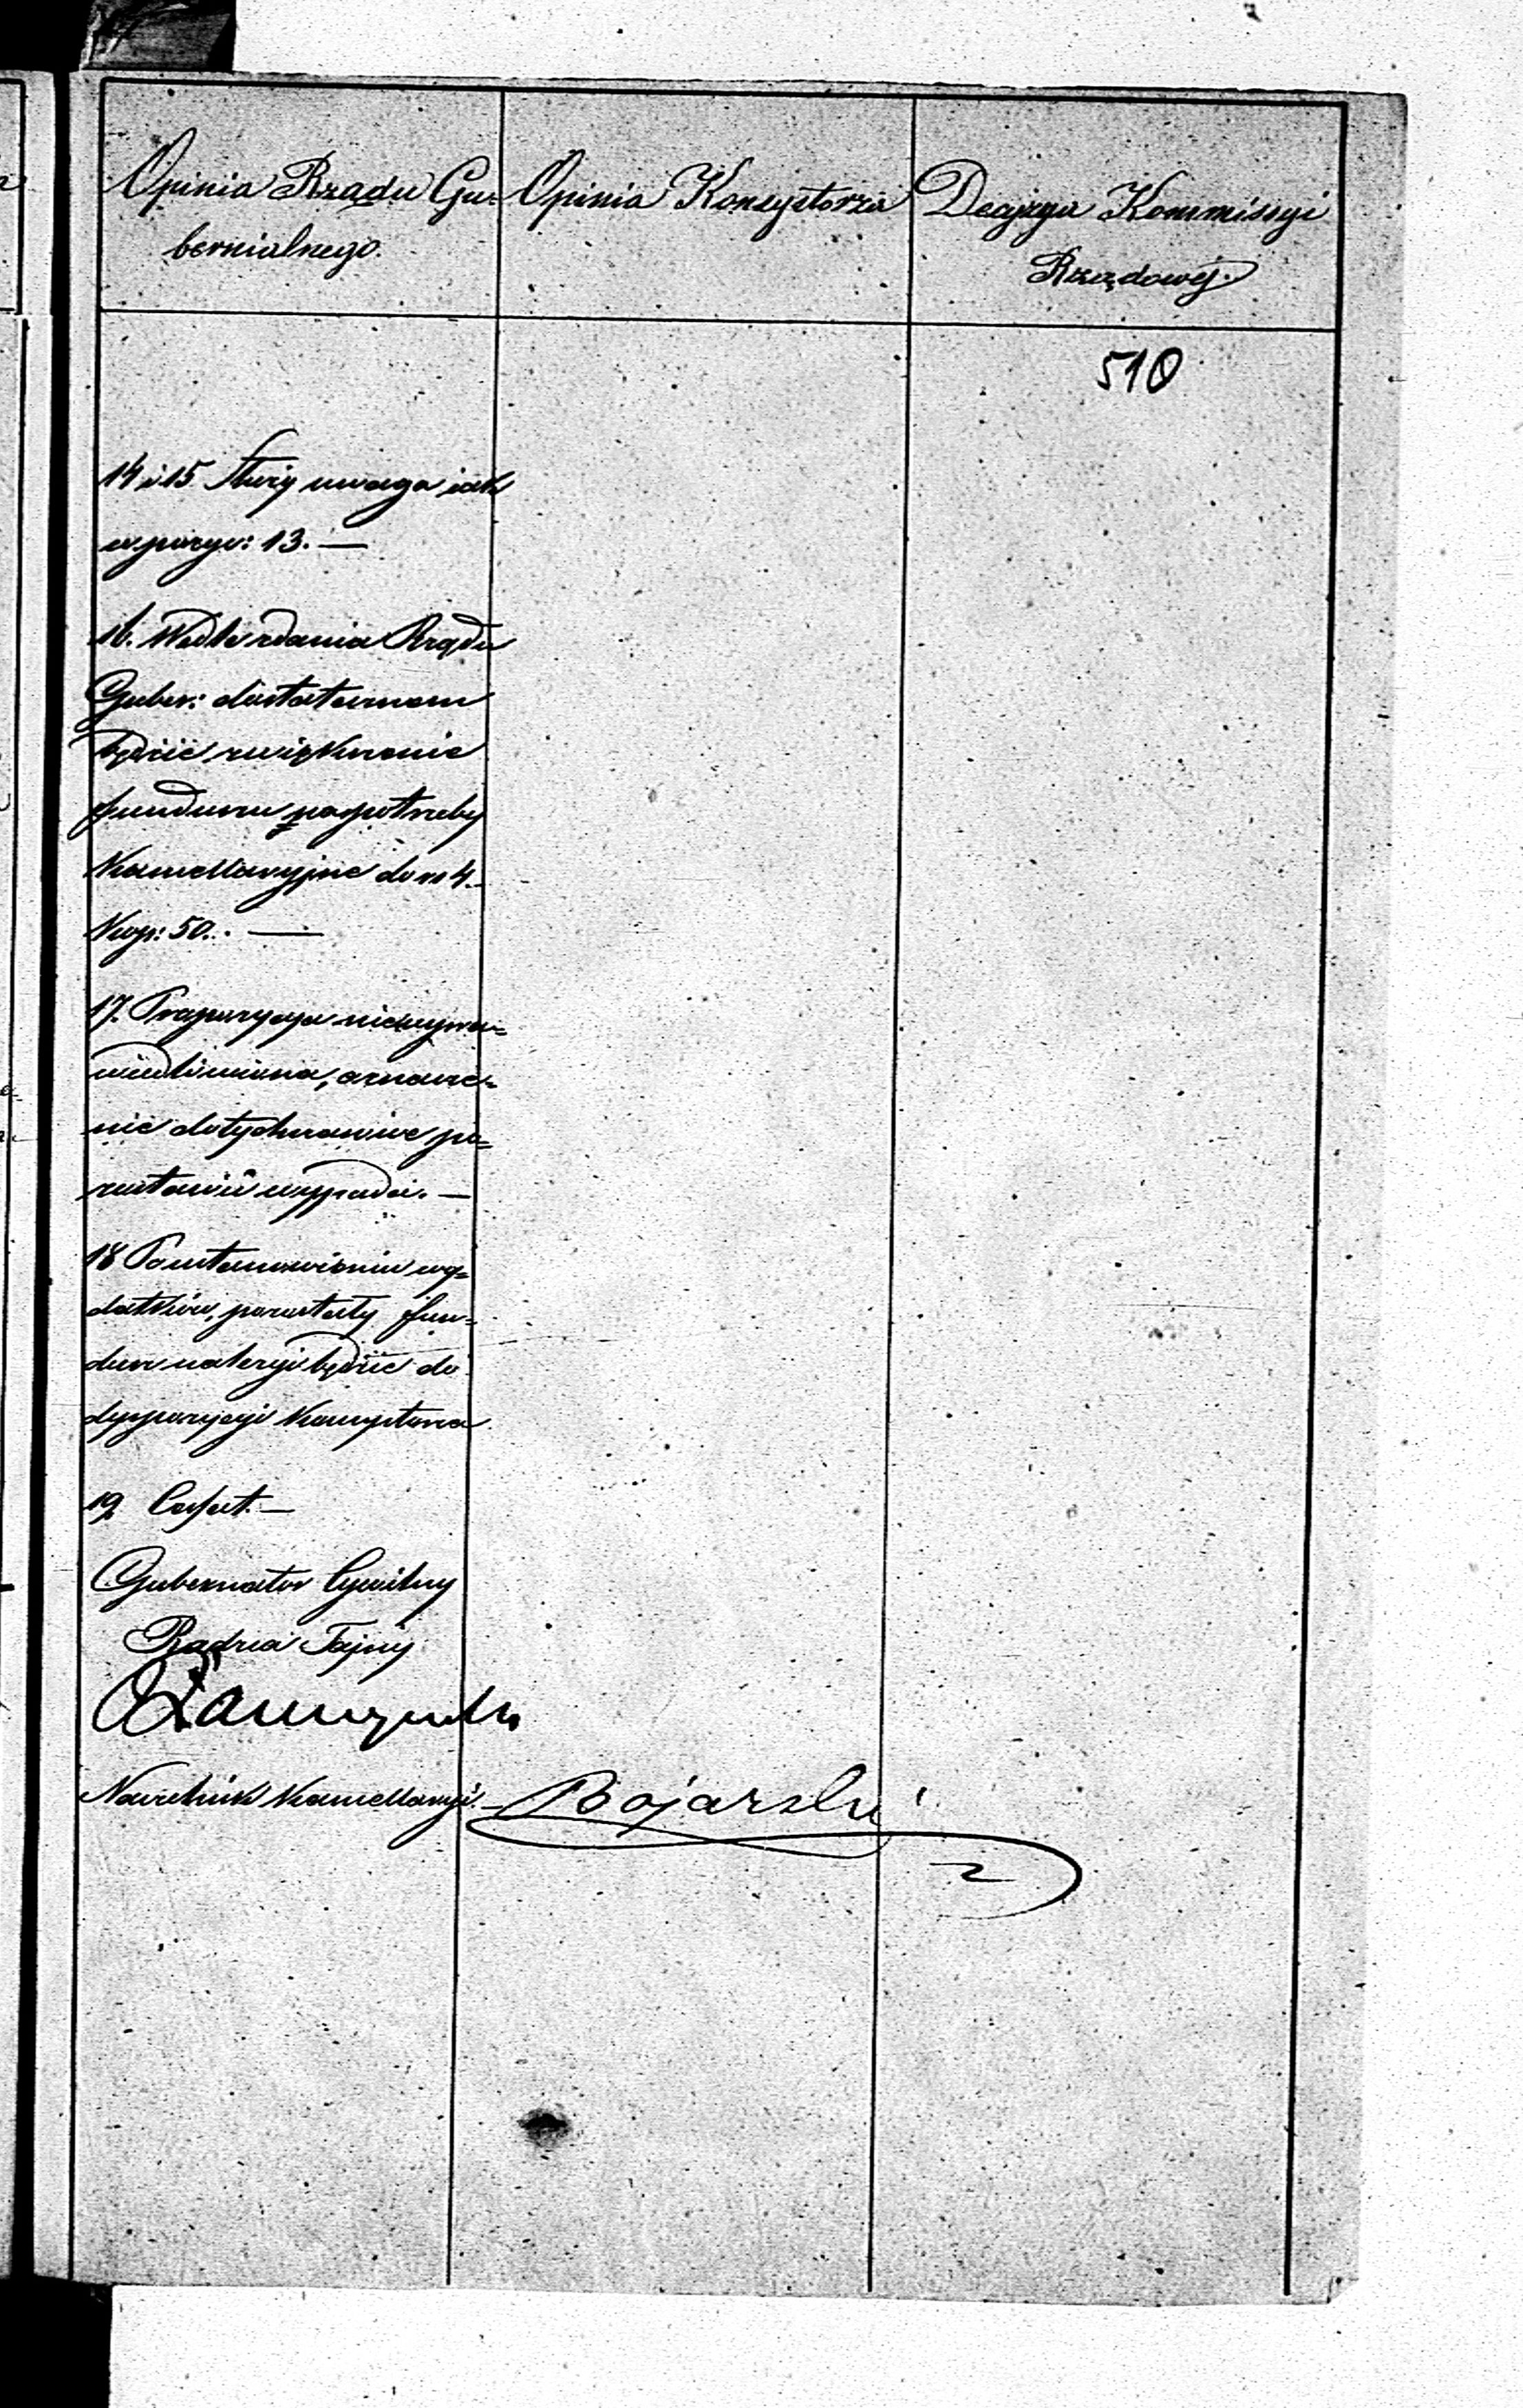 Opinia Rządu Gu-
bernialnego.
Opinia Konsystorza
Decyzya Kommissyi
Rządowej.
510
14 i 15 Służy uwaga jak
w pozyc: 13. —
16. Wedle zdania Rządu
Guber: dostatecznem
będzie zwiększenie
funduszu na potrzeby
Kancellaryjne do rs 4.
Kop: 50. —
17. Propozycya nieuspra-
wiedliwiona, oznacze-
nie dotychczasowe po-
zostawić wypada. —
18 Po ustanowieniu wy-
datków, pozostały fun-
dusz należeć będzie do
dyspozycyi Konsystorza
19
Gubernator Cywilny
Radca Tajny
Naczelnik Kancellaryi.
Bojarski